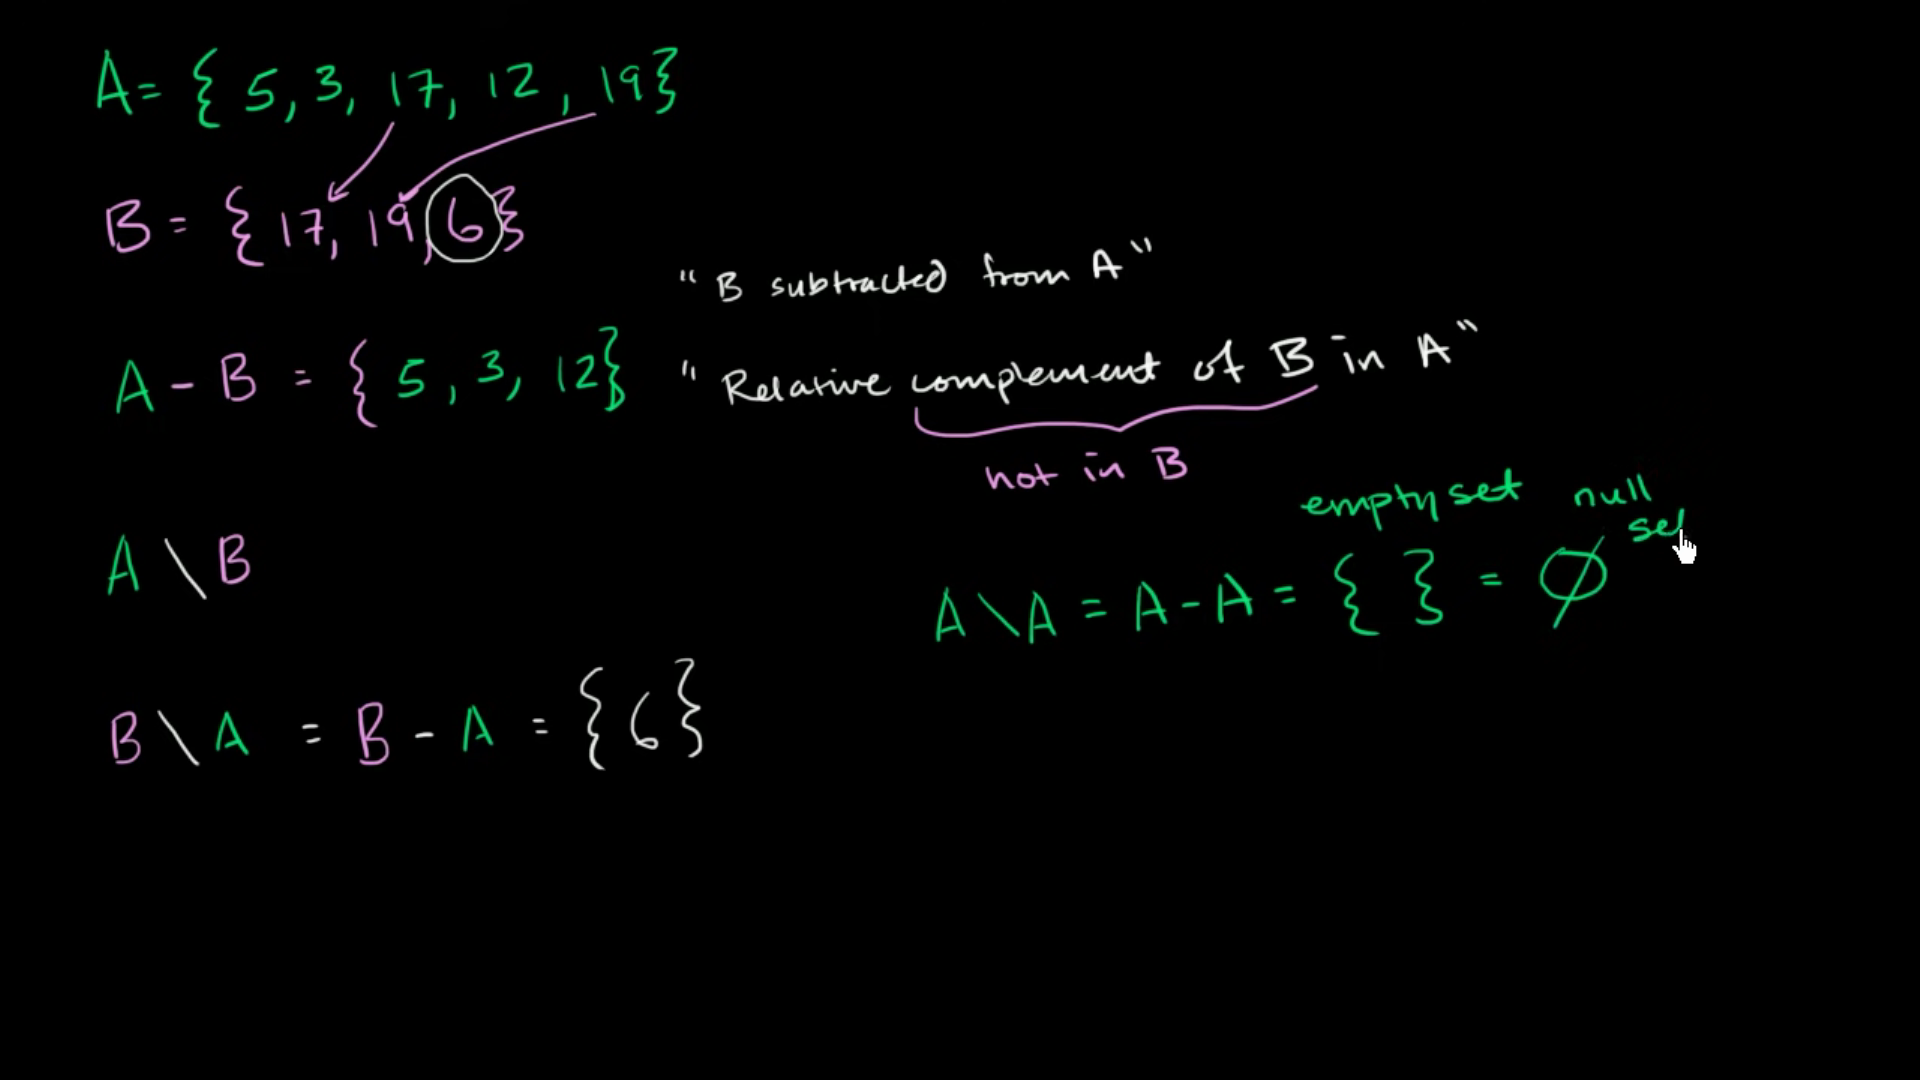 A = { 5, 3, 17, 12, 19}
B = { 17, 19, 6}
"B subtracted from A"
A - B = { 5, 3, 12}
"Relative complement of B in A"
not in B
empty set
null
set
A \ B
A \ A = A - A = { } = ∅
B \ A = B - A = {6}